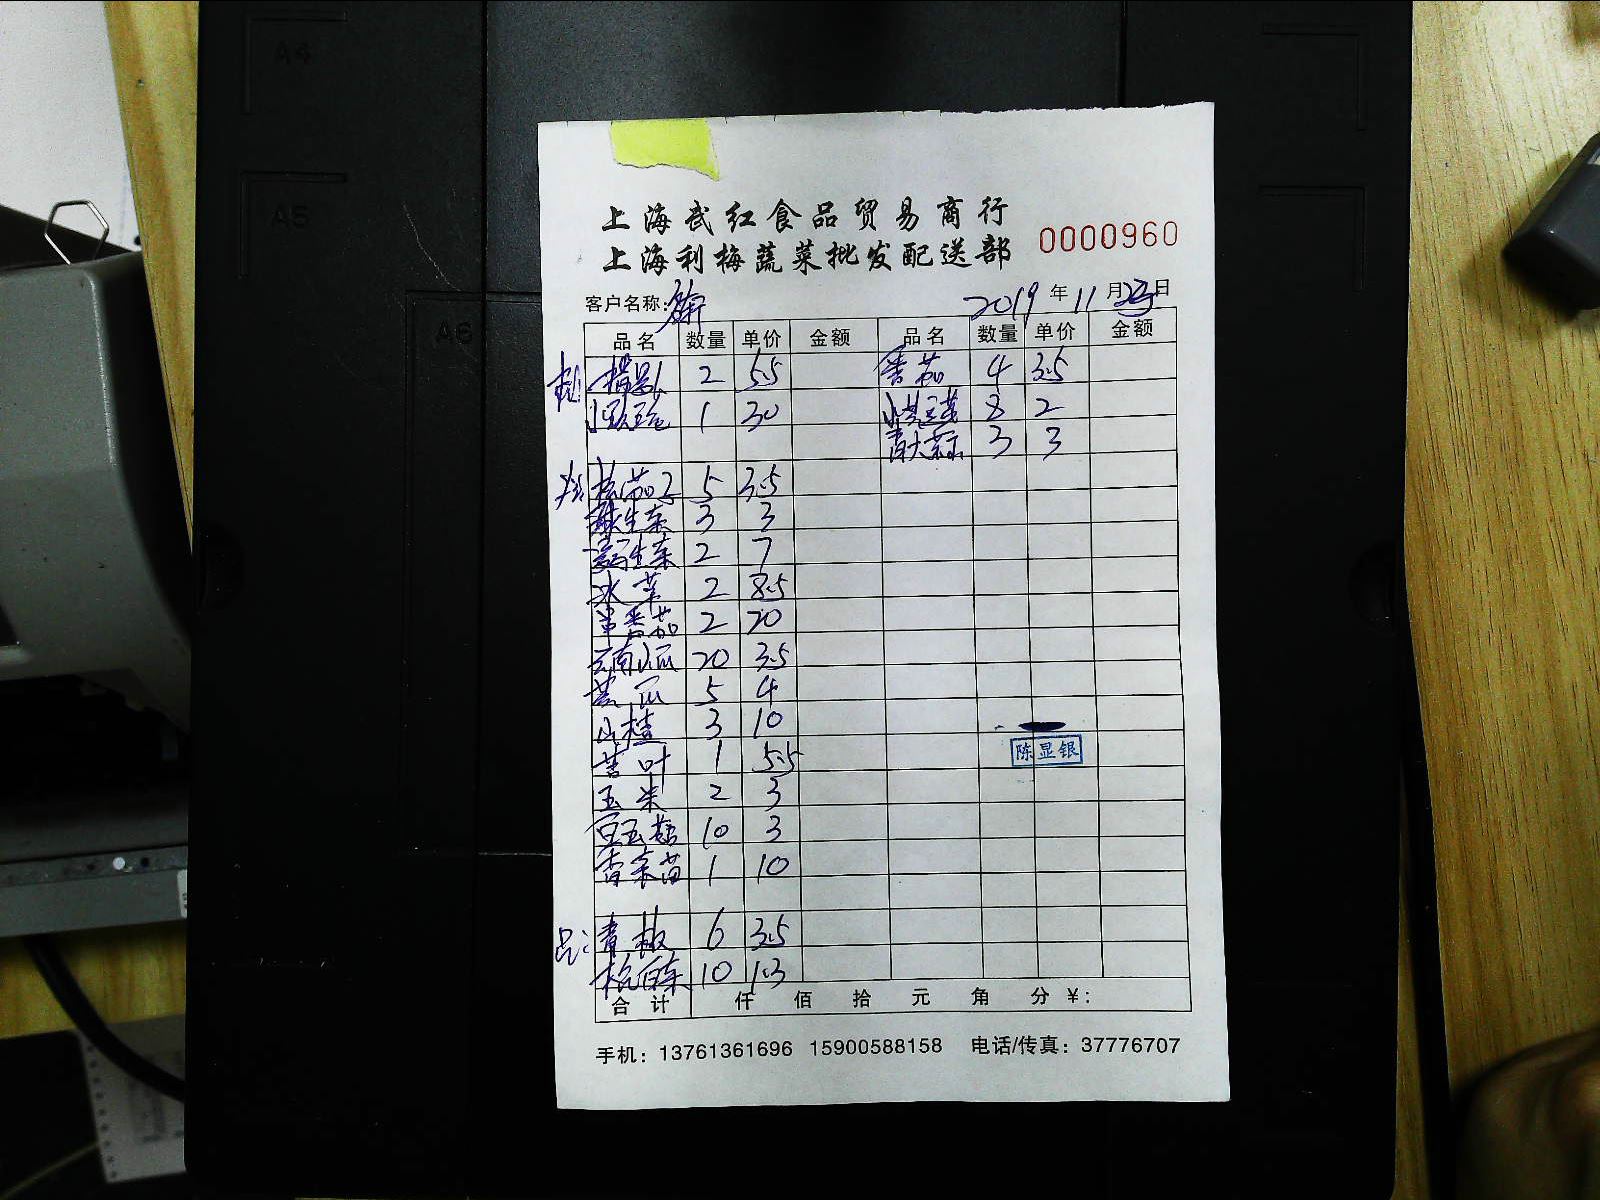 A4
A5
A6
上海武红食品贸易商行
上海利梅蔬菜批发配送部
0000960
客户名称：
2019年11月23日
品名 数量 单价 金额 品名 数量 单价 金额
2 5.5 番茄 4 3.5
1 30 8 2
3 3
5 3.5
球生菜 3 3
生菜 2 7
冰菜 2 8.5
番茄 2 20
云南小瓜 20 3.5
黄瓜 5 4
山楂 3 10
叶 1 5.5
玉米 2 3
10 3
香菜苗 1 10
青椒 6 3.5
10 1.3
陈显银
合计 仟 佰 拾 元 角 分 ¥：
手机：13761361696 15900588158 电话/传真：37776707